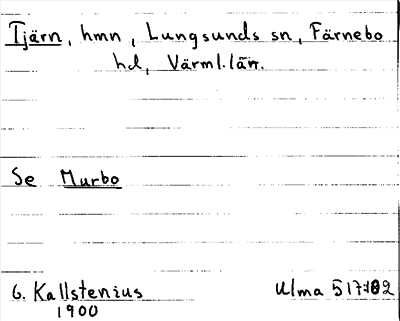 Tjärn, hmn, Lungsunds sn, Färnebo
hd, Värml. län.
Se Murbo
G. Kallstenius
1900
Ulma 517:182